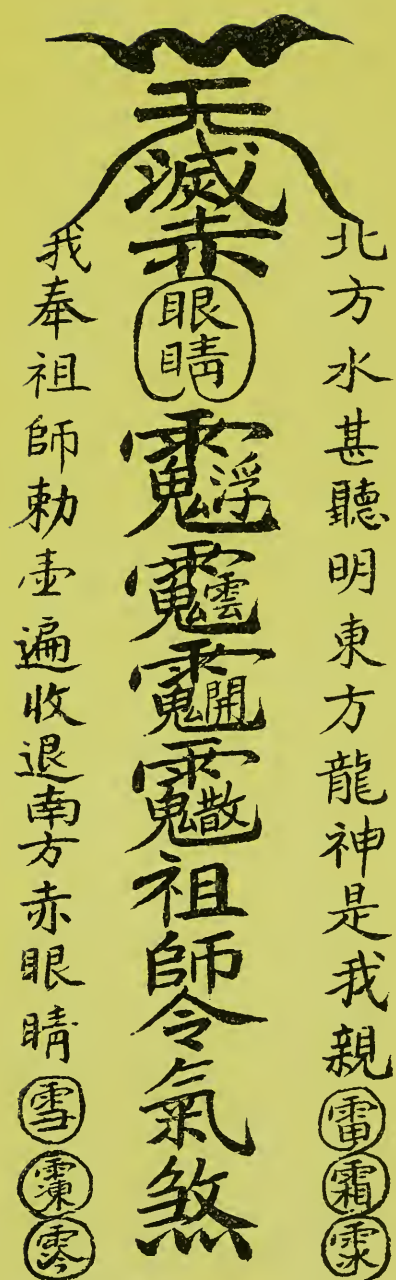 北方水甚聽明東方龍神是我親雷霜
天滅赤眼睛浮雲開散祖師令氣煞
我奉祖師勅遍收退南方赤眼睛雪零